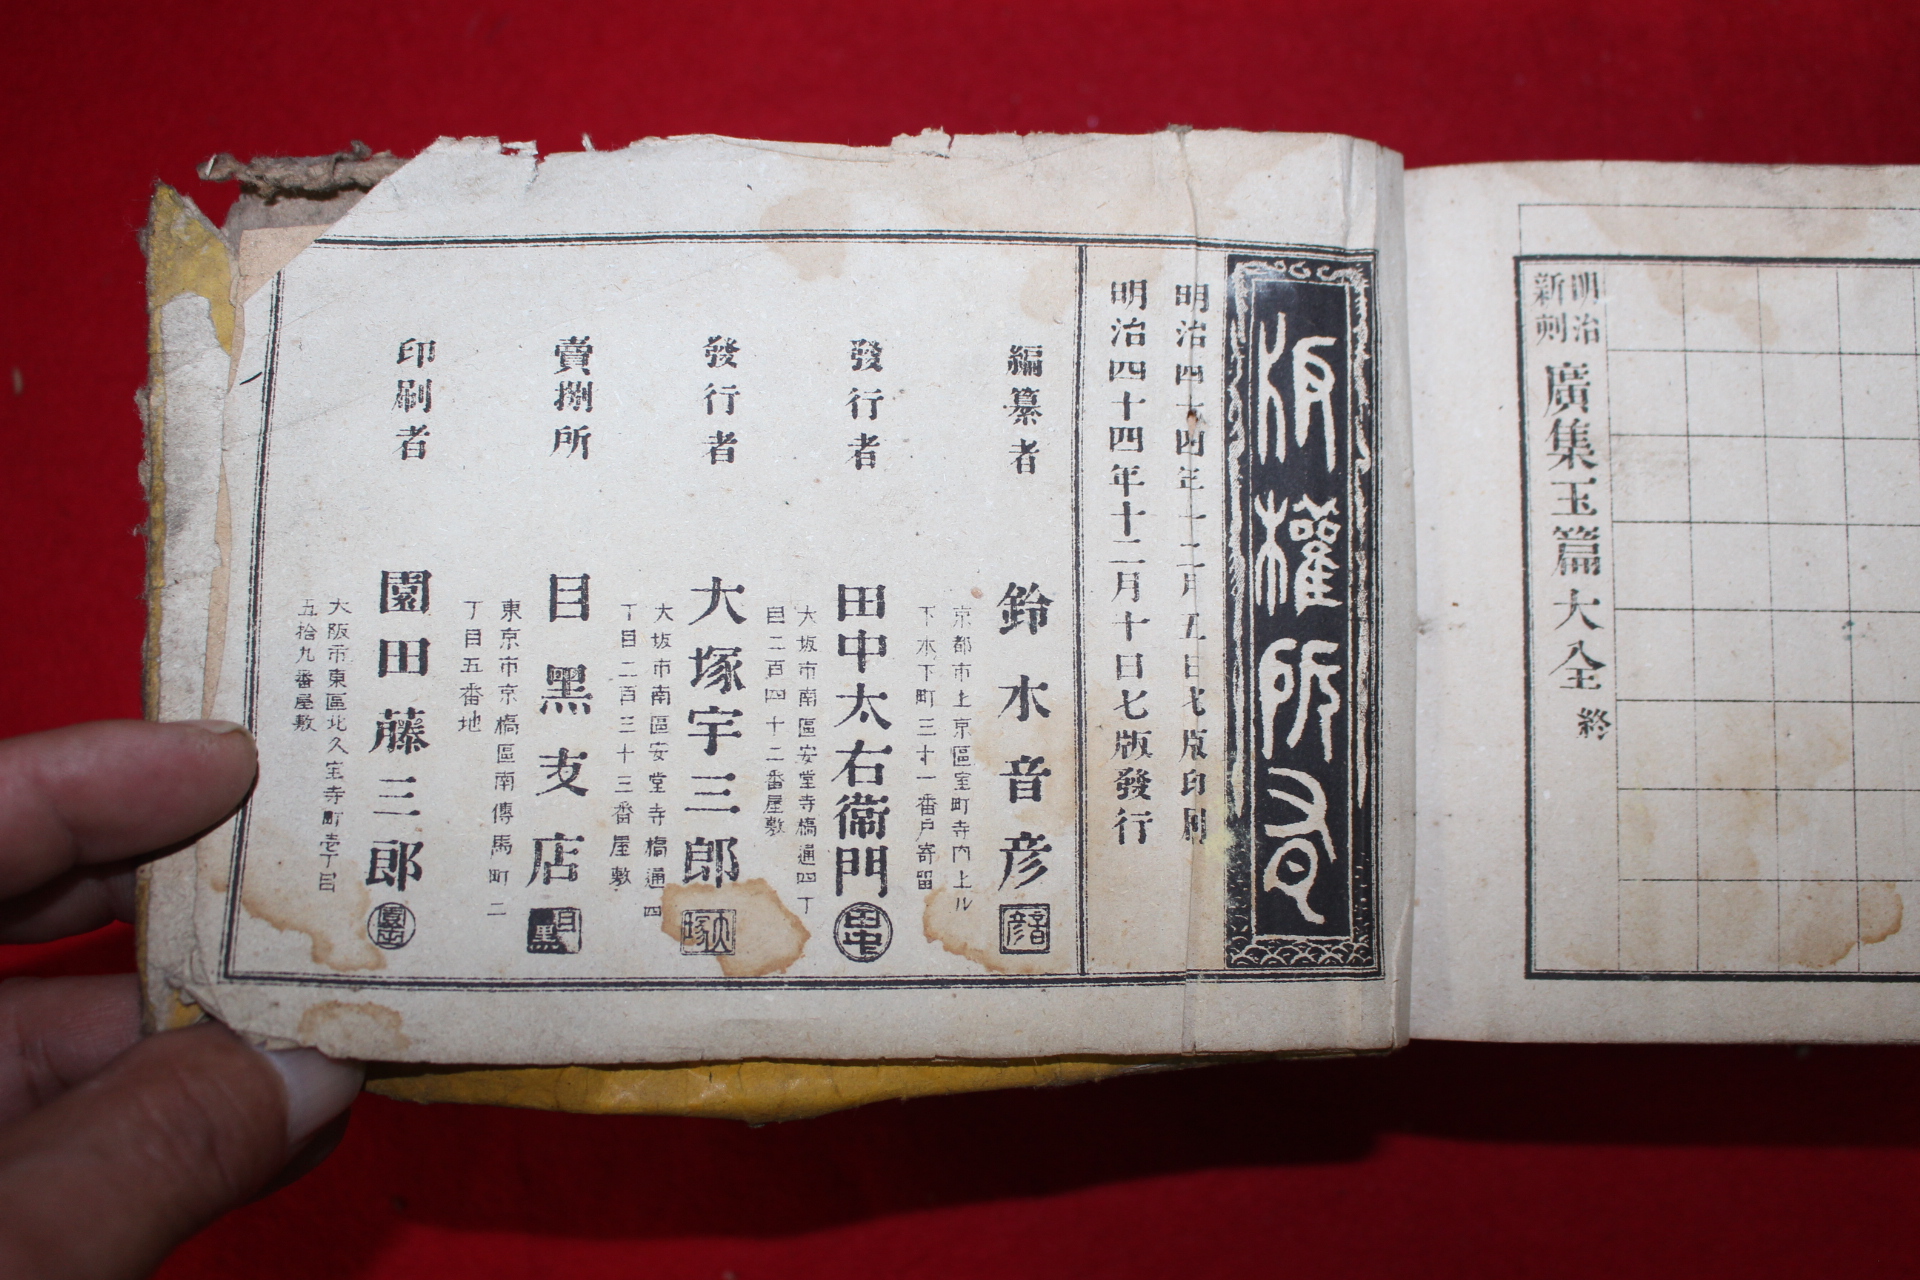 明治
新刻
廣集玉篇大全
終
板權所有
明治四十四年十二月五日七版印刷
明治四十四年十二月十日七版發行
編纂者
京都市上京區室町寺内上ル
下木下町三十一番戸寄留
鈴木音彦
發行者
大坂市南區安堂寺橋通四丁
目二百四十二番屋敷
田中太右衞門
田中
發行者
大坂市南區安堂寺橋通四
丁目二百三十三番屋敷
大塚宇三郎
大塚
賣捌所
東京市京橋區南傳馬町二
丁目五番地
目黑支店
目黑
印刷者
大阪市東區北久宝寺町壱丁目
五拾九番屋敷
園田藤三郎
園田